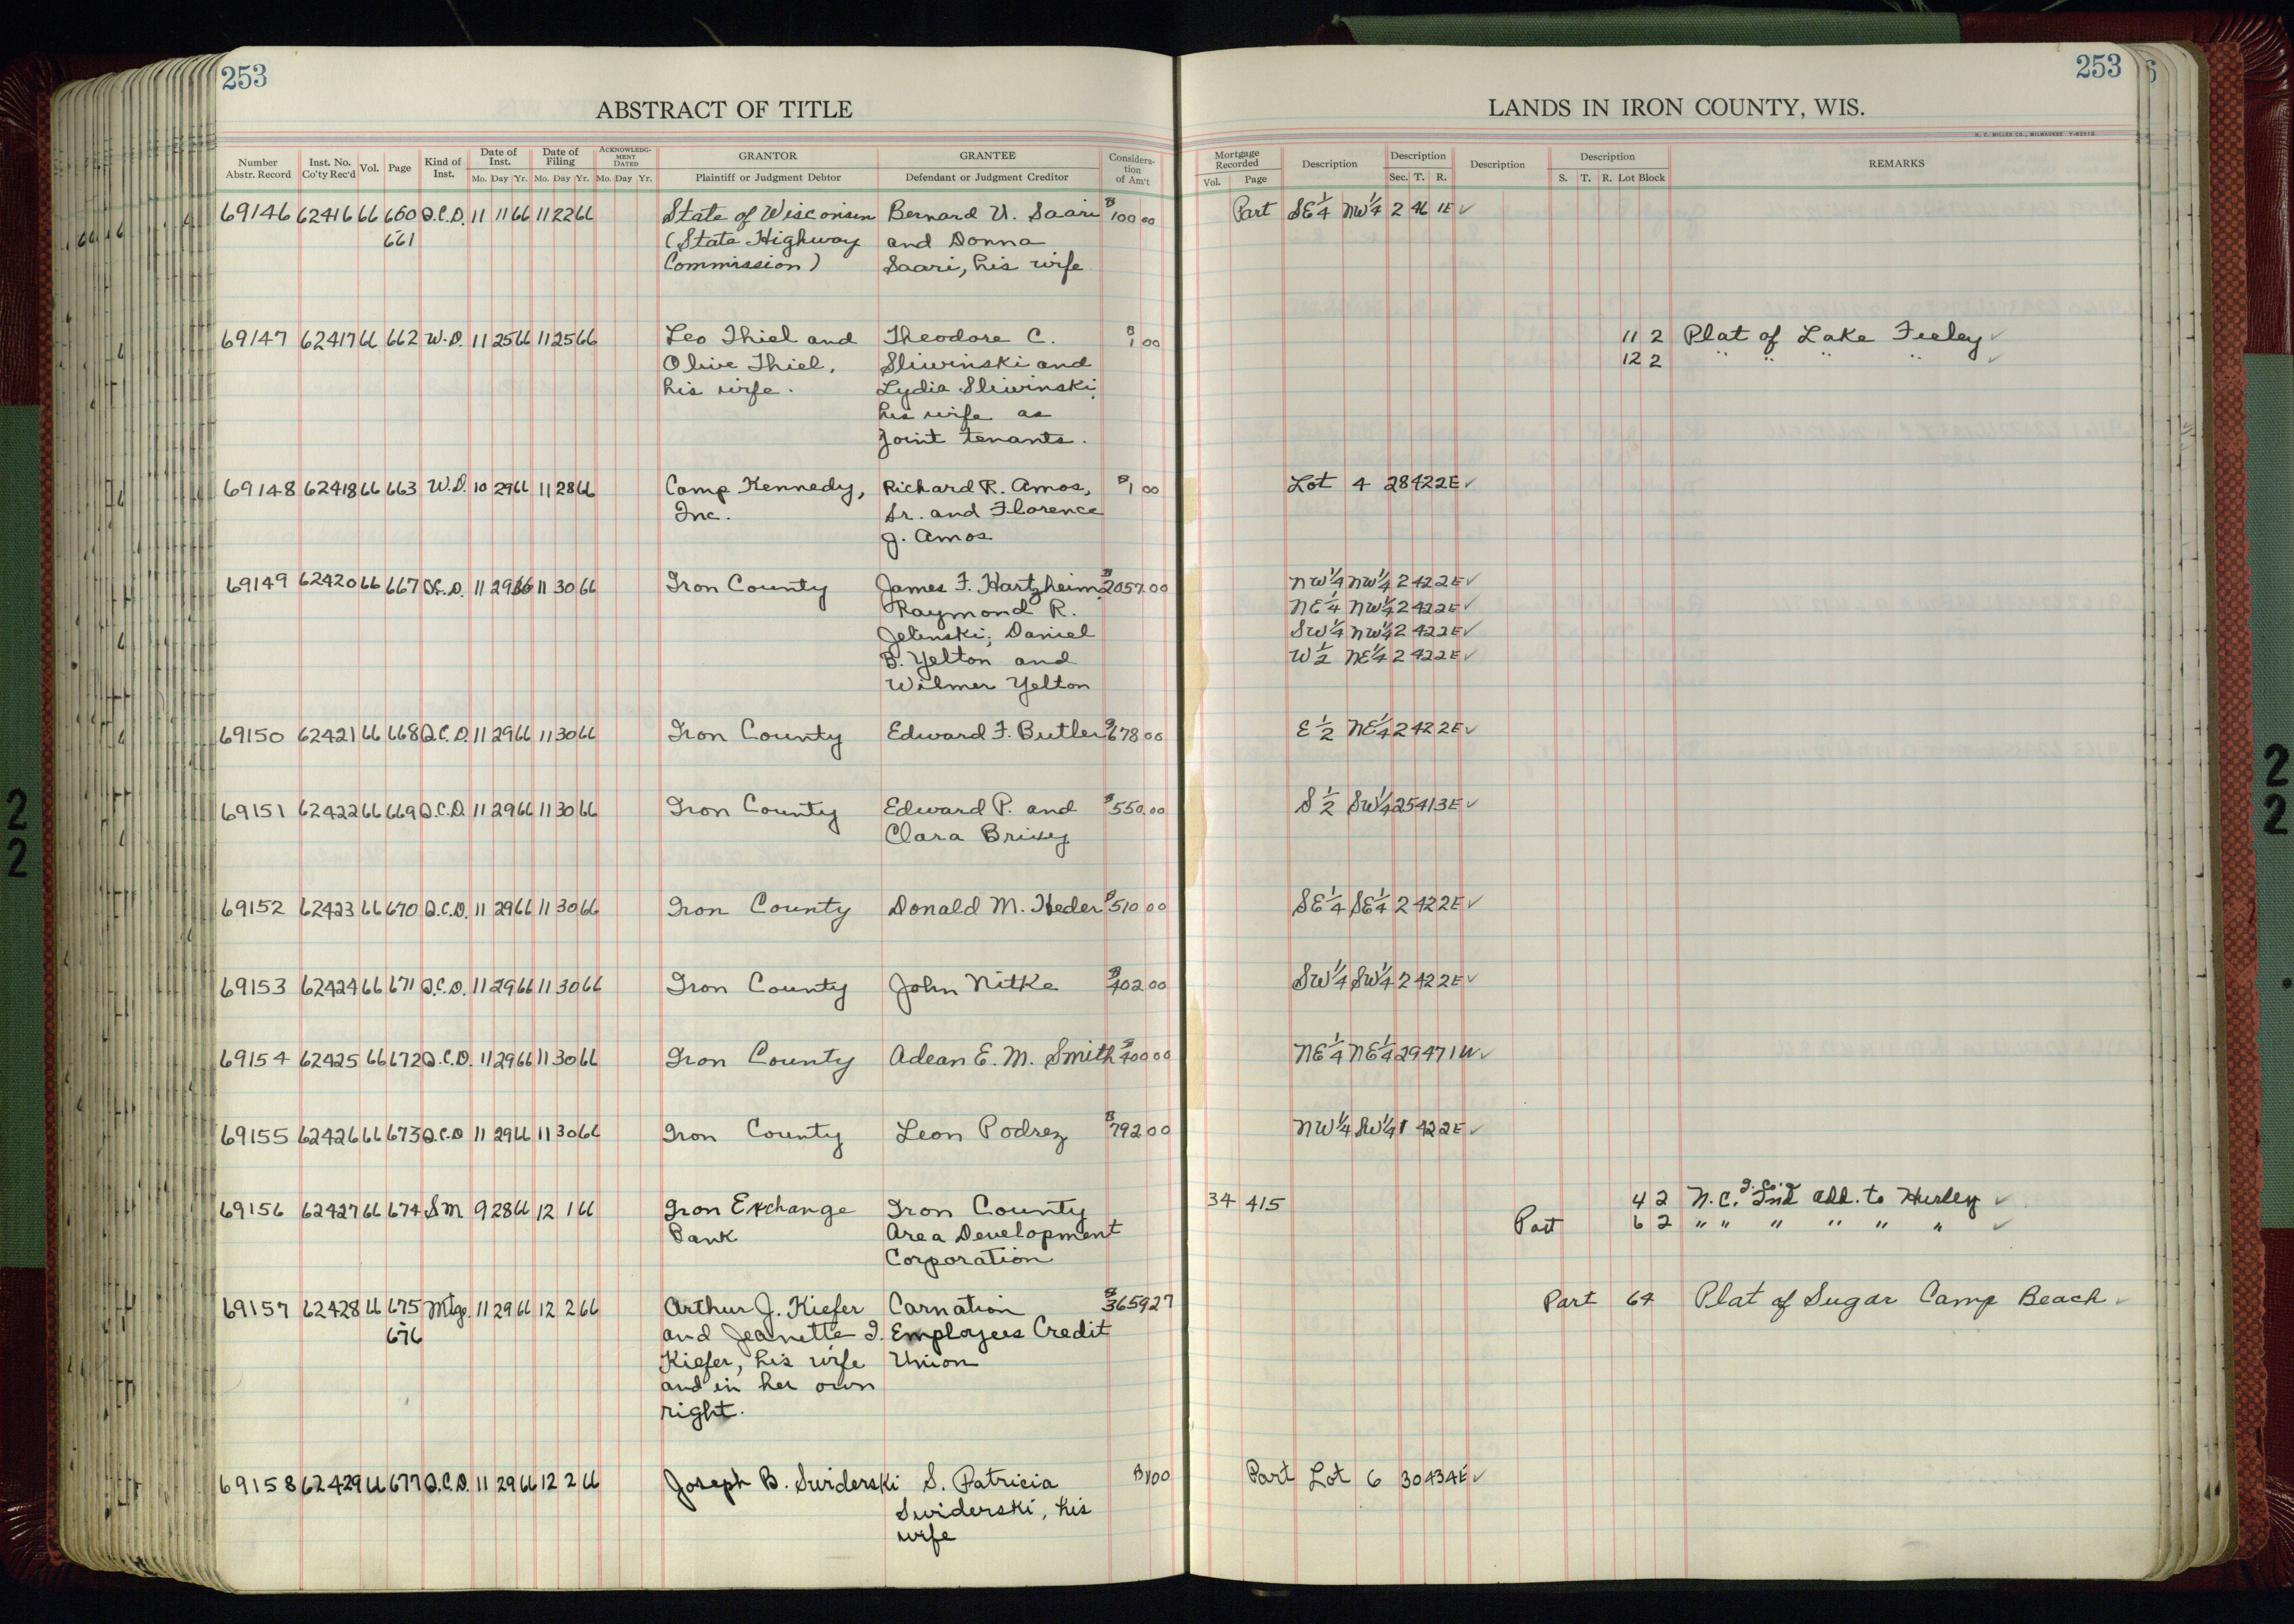 253
ABSTRACT OF TITLE
Number Abstr. Record Inst. No. Co'ty Rec'd Vol. Page Kind of Inst. Date of Inst. Mo. Day Yr. Date of Filing Mo. Day Yr. ACKNOWLEDG-MENT DATED Mo. Day Yr. GRANTOR Plaintiff or Judgment Debtor GRANTEE Defendant or Judgment Creditor Considera-tion of Am't
69146 62416 66 660 Q.C.D. 11 11 66 11 22 66 State of Wisconsin Bernard U. Saari $100 00
661 (State Highway and Donna
Commission) Saari, his wife
69147 62417 66 662 W.D. 11 25 66 11 25 66 Leo Thiel and Theodore C. $1 00
Olive Thiel, Sliwinski and
his wife. Lydia Sliwinski,
his wife as
Joint tenants.
69148 62418 66 663 W.D. 10 29 66 11 28 66 Camp Kennedy, Richard R. Amos, $1 00
Inc. Sr. and Florence
J. Amos
69149 62420 66 667 Q.C.D. 11 29 66 11 30 66 Iron County James F. Hartzheim, $2057.00
Raymond R.
Jelinski, Daniel
B. Yelton and
Wilmer Yelton
69150 62421 66 668 Q.C.D. 11 29 66 11 30 66 Iron County Edward F. Butler $678 00
69151 62422 66 669 Q.C.D. 11 29 66 11 30 66 Iron County Edward P. and $550.00
Clara
69152 62423 66 670 Q.C.D. 11 29 66 11 30 66 Iron County Donald M. Heder $510 00
69153 62424 66 671 Q.C.D. 11 29 66 11 30 66 Iron County John Nitke $402 00
69154 62425 66 672 Q.C.D. 11 29 66 11 30 66 Iron County Adean E. M. Smith $400 00
69155 62426 66 673 Q.C.D 11 29 66 11 30 66 Iron County Leon Podrez $792 00
69156 62427 66 674 SM 9 28 66 12 1 66 Iron Exchange Iron County
Bank Area Development
Corporation
69157 62428 66 675 Mtge. 11 29 66 12 2 66 Arthur J. Kiefer Carnation $3659 27
676 and Jeanette I. Employees Credit
Kiefer, his wife Union
and in her own
right.
69158 62429 66 677 Q.C.D. 11 29 66 12 2 66 Joseph B. Swiderski S. Patricia $1 00
Swiderski, his
wife
253
LANDS IN IRON COUNTY, WIS.
H. C. MILLER CO., MILWAUKEE
Mortgage Recorded Vol. Page Description Description Sec. T. R. Description Description S. T. R. Lot Block REMARKS
Part SE 1/4 NW 1/4 2 46 1E ✓
11 2 Plat of Lake Feeley ✓
12 2 " " " " ✓
Lot 4 28 42 2E ✓
NW 1/4 NW 1/4 2 42 2E ✓
NE 1/4 NW 1/4 2 42 2E ✓
SW 1/4 NW 1/4 2 42 2E ✓
W 1/2 NE 1/4 2 42 2E ✓
E 1/2 NE 1/4 2 42 2E ✓
S 1/2 SW 1/4 25 41 3E ✓
SE 1/4 SE 1/4 2 42 2E ✓
SW 1/4 SW 1/4 2 42 2E ✓
NE 1/4 NE 1/4 29 47 1W ✓
NW 1/4 SW 1/4 1 42 2E ✓
34 415 4 2 N.C. Ind add. to Hurley ✓
Part 6 2 " " " " " " ✓
Part 64 Plat of Sugar Camp Beach ✓
Part Lot 6 30 43 4E ✓
2
2
2
2